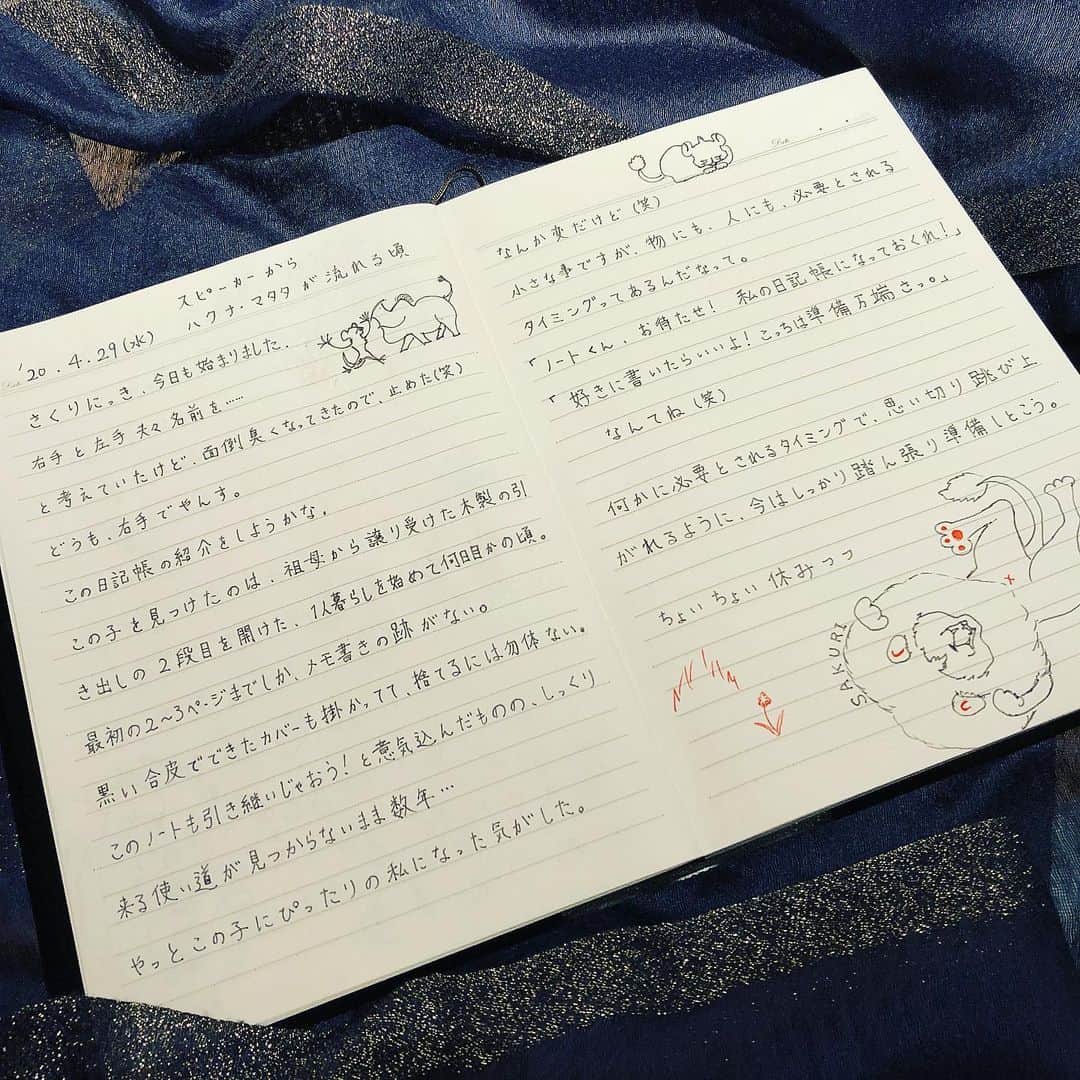 スピーカーから
ハクナ・マタタが流れる頃
Date
'20.4.29(水)
さくりにっき、今日も始まりました。
右手と左手 夫々名前を……
と考えていたけど、面倒臭くなってきたので、止めた(笑)
どうも、右手でやんす。
この日記帳の紹介をしようかな。
この子を見つけたのは、祖母から譲り受けた木製の引
き出しの2段目を開けた、1人暮らしを始めて何日目かの頃。
最初の2〜3ページまでしか、メモ書きの跡がない。
黒い合皮でできたカバーも掛かってて、捨てるには勿体ない。
このノートも引き継いじゃおう!と意気込んだものの、しっくり
来る使い道が見つからないまま数年…
やっとこの子にぴったりの私になった気がした。
Date
なんか変だけど(笑)
小さな事ですが、物にも、人にも、必要とされる
タイミングってあるんだなって。
「ノートくん、お待たせ! 私の日記帳になっておくれ!」
「好きに書いたらいいよ!こっちは準備万端さっ。」
なんてね(笑)
何かに必要とされるタイミングで、思い切り跳び上
がれるように、今はしっかり踏ん張り準備しとこう。
ちょいちょい休みつつ
SAKURI